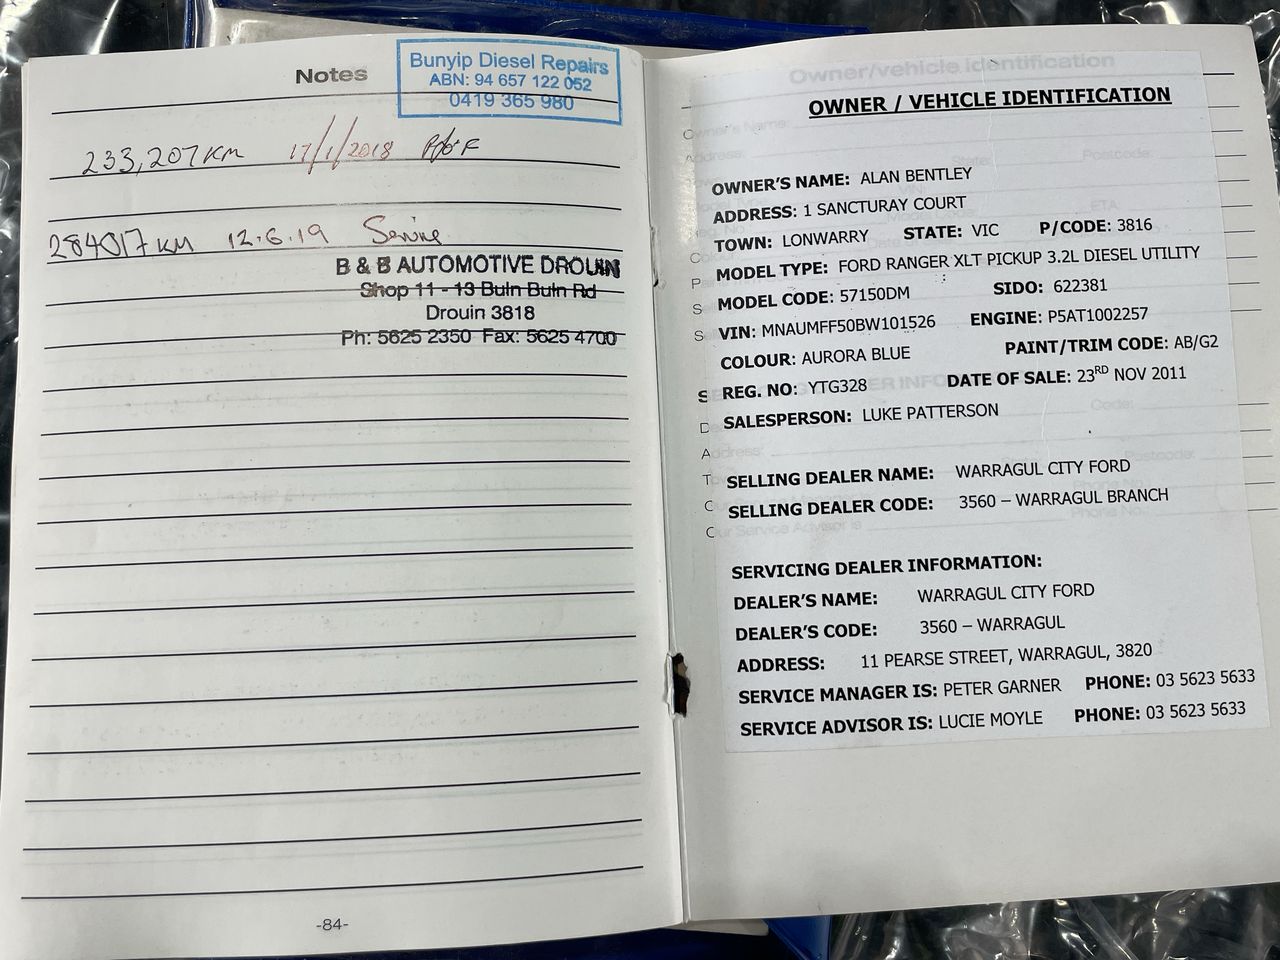 Notes
Bunyip Diesel Repairs
ABN: 94 657 122 052
0419 365 980
233,207 KM 17/1/2018
284017 KM 12.6.19 Service
B & B AUTOMOTIVE DROUIN
Shop 11 - 13 Buln Buln Rd
Drouin 3818
Ph: 5625 2350 Fax: 5625 4700
-84-
Owner/vehicle identification
OWNER / VEHICLE IDENTIFICATION
OWNER'S NAME: ALAN BENTLEY
ADDRESS: 1 SANCTURAY COURT
TOWN: LONWARRY STATE: VIC P/CODE: 3816
MODEL TYPE: FORD RANGER XLT PICKUP 3.2L DIESEL UTILITY
MODEL CODE: 57150DM SIDO: 622381
VIN: MNAUMFF50BW101526 ENGINE: P5AT1002257
COLOUR: AURORA BLUE PAINT/TRIM CODE: AB/G2
REG. NO: YTG328 DATE OF SALE: 23RD NOV 2011
SALESPERSON: LUKE PATTERSON
SELLING DEALER NAME: WARRAGUL CITY FORD
SELLING DEALER CODE: 3560 – WARRAGUL BRANCH
SERVICING DEALER INFORMATION:
DEALER'S NAME: WARRAGUL CITY FORD
DEALER'S CODE: 3560 – WARRAGUL
ADDRESS: 11 PEARSE STREET, WARRAGUL, 3820
SERVICE MANAGER IS: PETER GARNER PHONE: 03 5623 5633
SERVICE ADVISOR IS: LUCIE MOYLE PHONE: 03 5623 5633